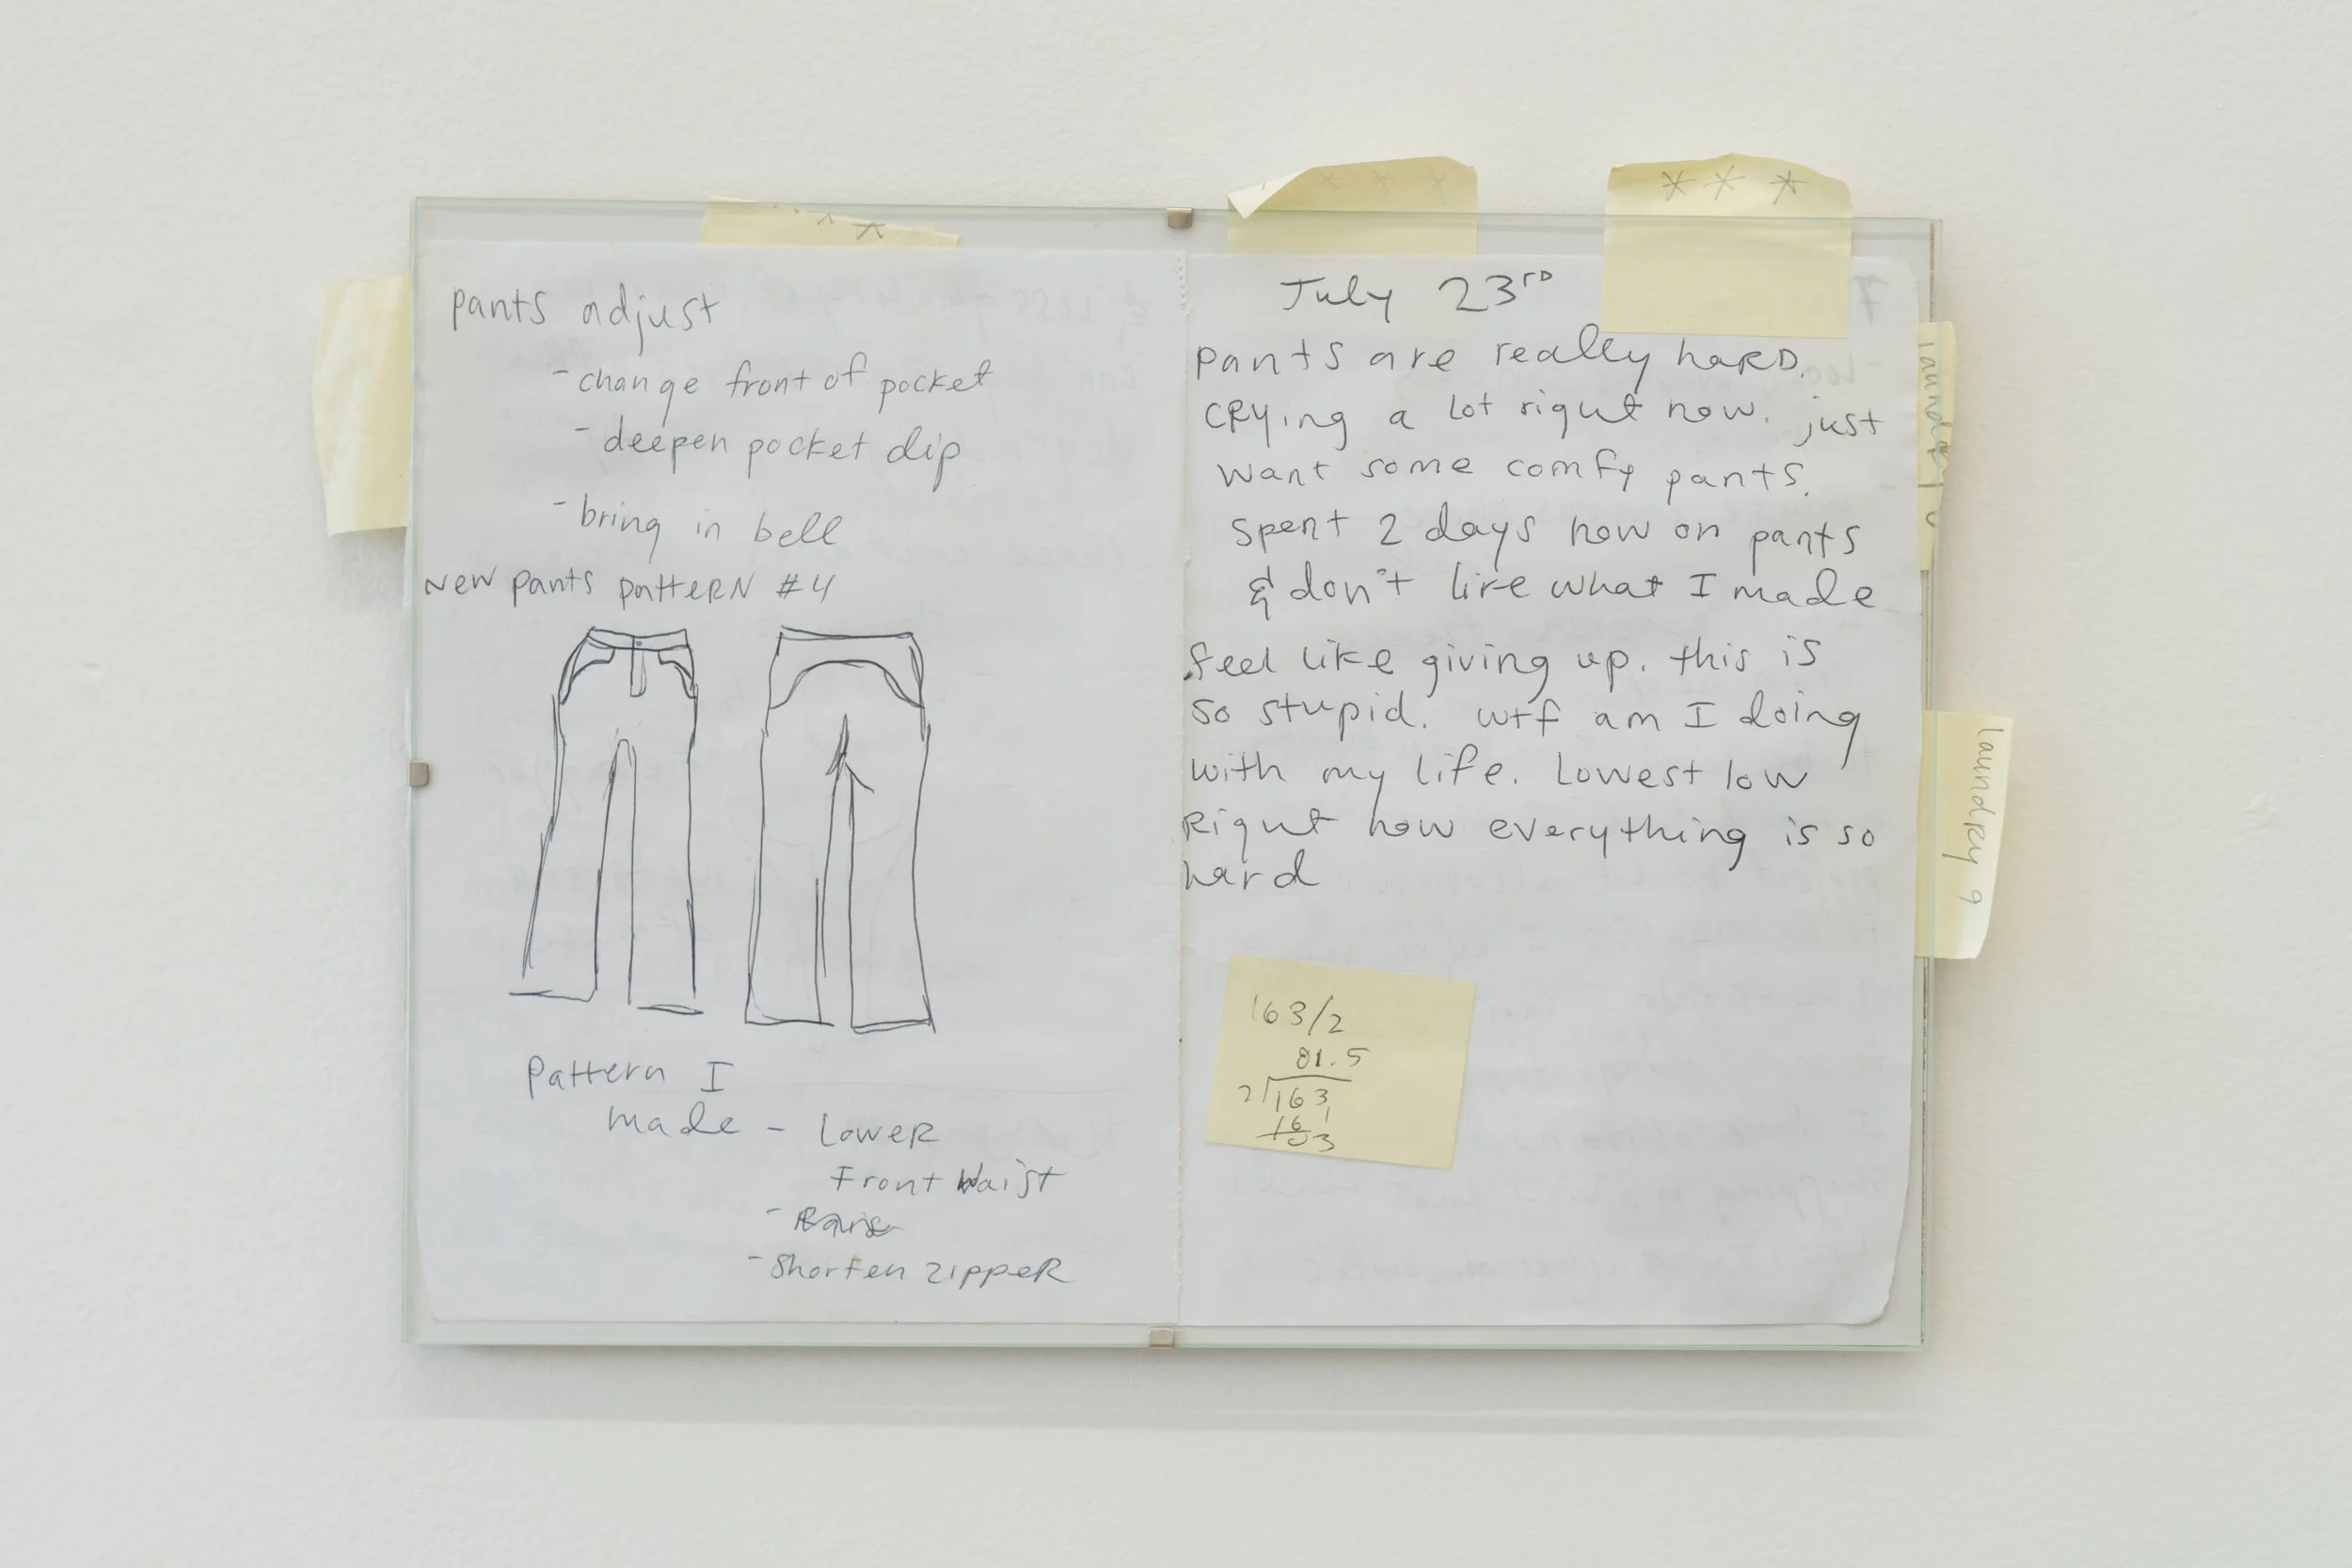 pants adjust
- change front of pocket
- deepen pocket dip
- bring in bell
New pants pattern #4
Pattern I
made - Lower
Front Waist
-
- Shorten zipper
* * *
July 23rd
pants are really hard.
crying a lot right now. just
want some comfy pants.
spent 2 days now on pants
& don't like what I made
feel like giving up. this is
so stupid. wtf am I doing
with my life. Lowest low
Right now everything is so
hard
163/2
81.5
2 163
16
03
laundry 9